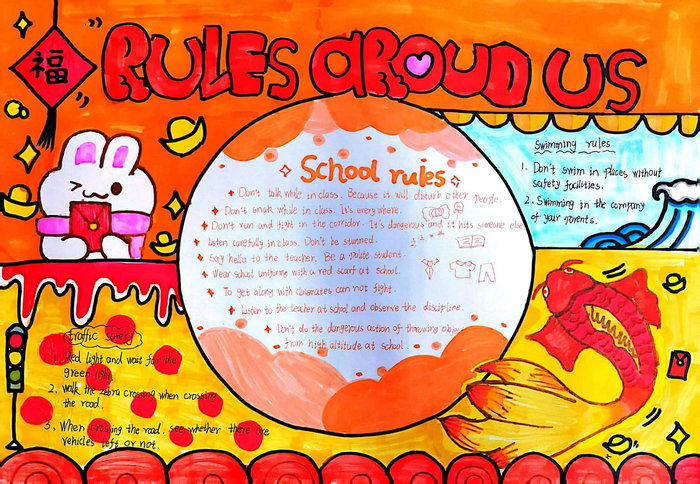 福
RULES AROUD US
School rules
Don't talk while in class. Because it will disturb other people.
Don't snak while in class. It's everywhere.
Don't run and fight in the corridor. It's dangerous and it hits someone else
listen carefully in class. Don't be stunned.
Say hello to the teacher. Be a polite student.
Wear school uniforms with a red scarf at school.
To get along with classmates can not fight.
Listen to the teacher at school and observe the discipline.
Don't do the dangerous action of throwing object
from high altitude at school.
Swimming rules
1. Don't swim in places without
safety facilities.
2. Swimming in the company
of your parents.
traffic safety
1. Red light and wait for the
green light.
2. Walk the zebra crossing when crossing
the road.
3. When crossing the road. see whether there are
vehicles left or not.